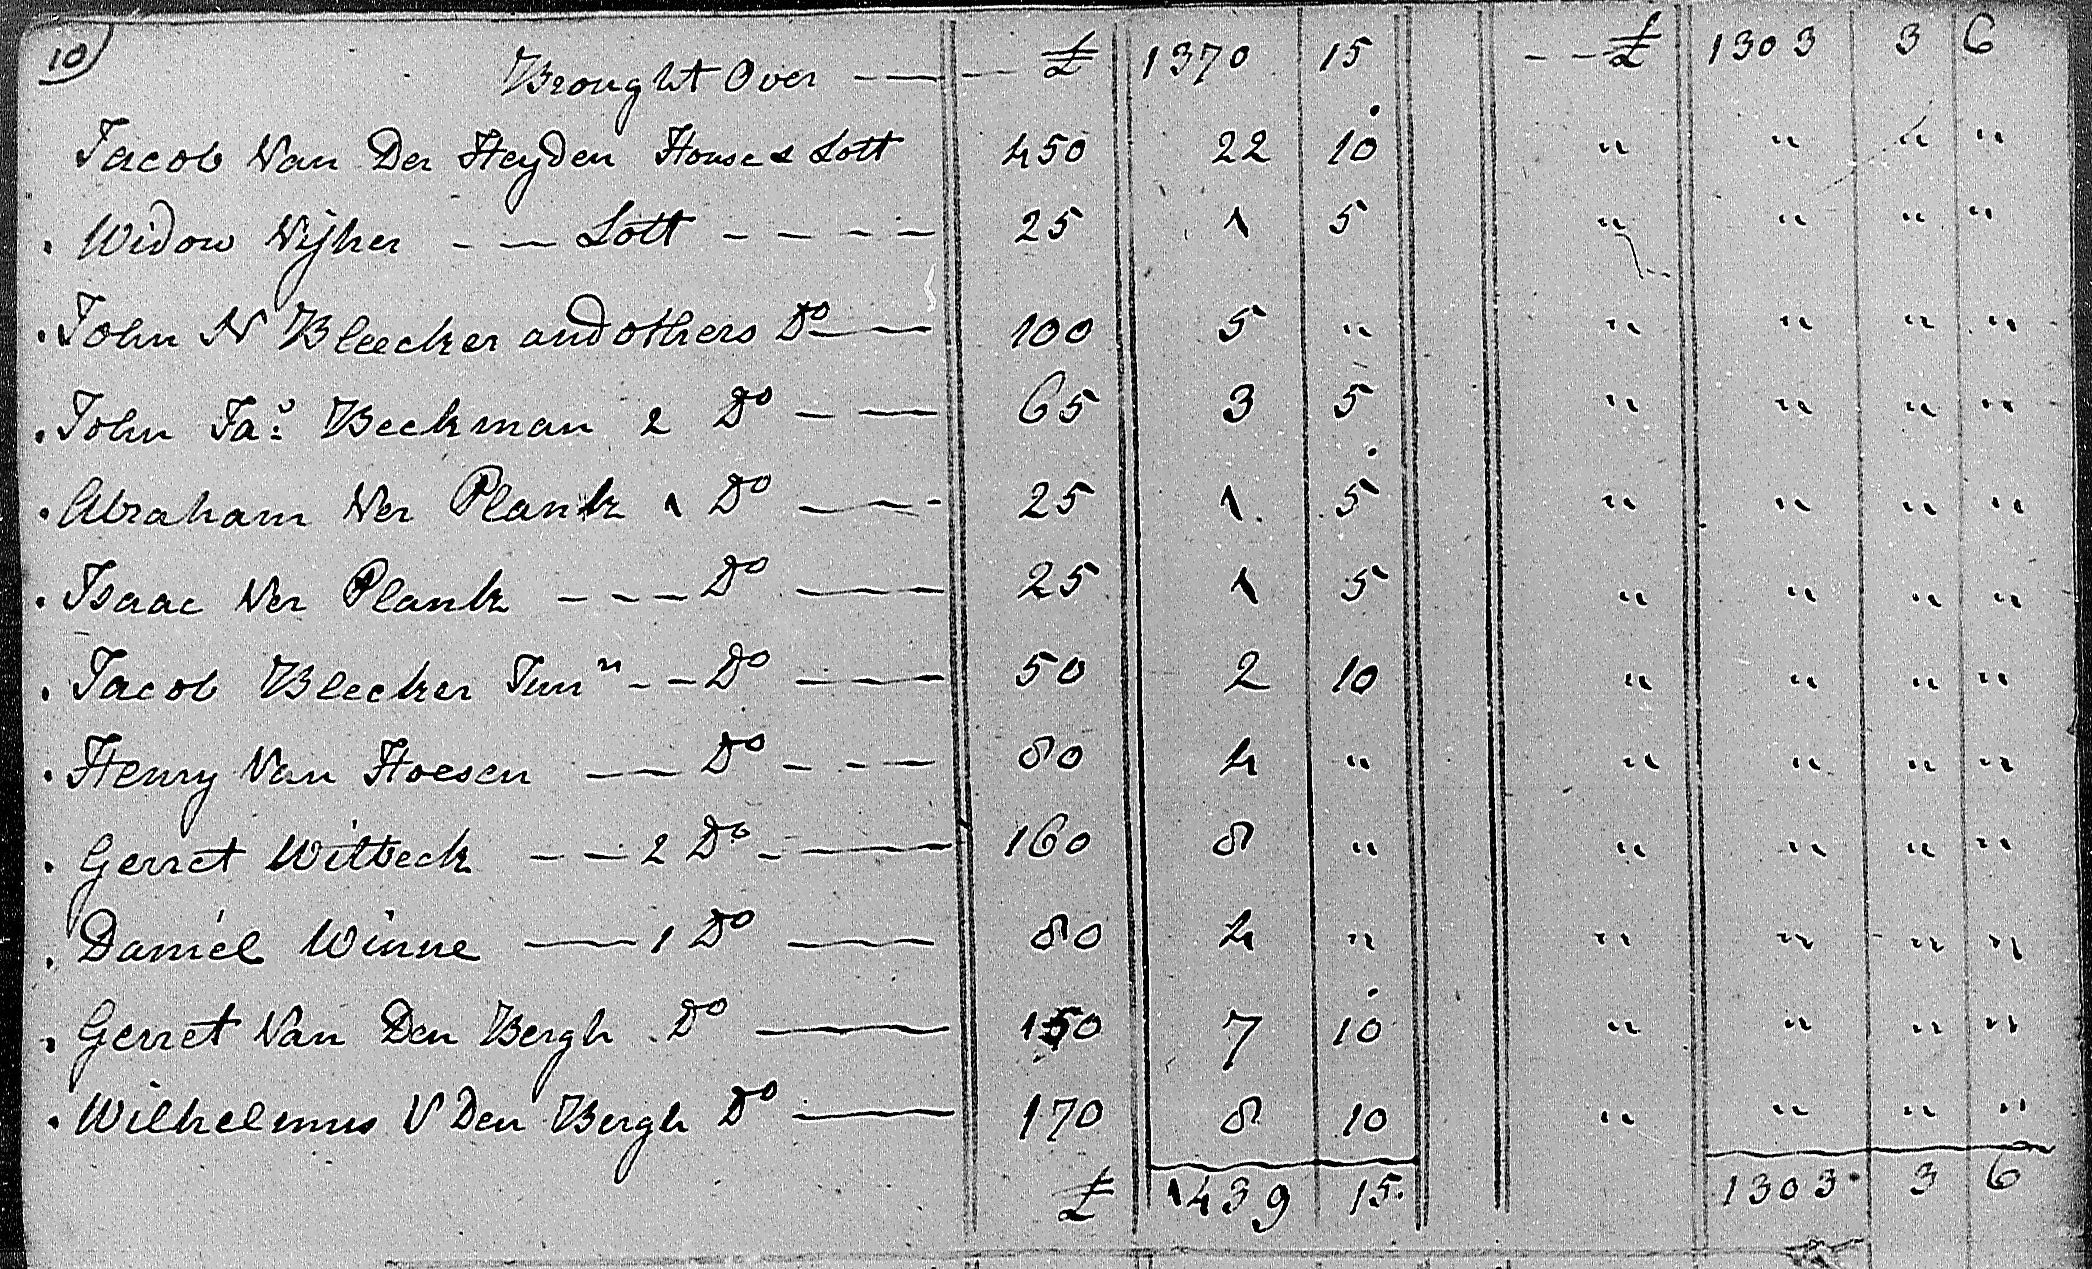 10
Brought Over — — £ 1370 15 - - £ 1303 3 6
Jacob Van Der Heyden House & Lott 450 22 10 " " " "
. Widow Vijher - — Lott - - - - 25 1 5 " " " "
. John N Bleecker and others Do — 100 5 " " " " "
. John Jas. Beekman 2 Do — — 65 3 5 " " " "
. Abraham Ver Plank 1 Do — - 25 1 5 " " " "
. Isaac Ver Plank - - - Do — 25 1 5 " " " "
. Jacob Bleecker Junr - - Do — 50 2 10 " " " "
. Henry Van Hoesen — — Do - - — 80 4 " " " " "
. Gerret Witbeck - — 2 Do - — 160 8 " " " " "
. Daniel Winne — 1 Do — 80 4 " " " " "
. Gerret Van Den Bergh . Do — 150 7 10 " " " "
. Wilhelmus V Den Bergh Do — 170 8 10 " " " "
£ 1439 15. 1303 3 6